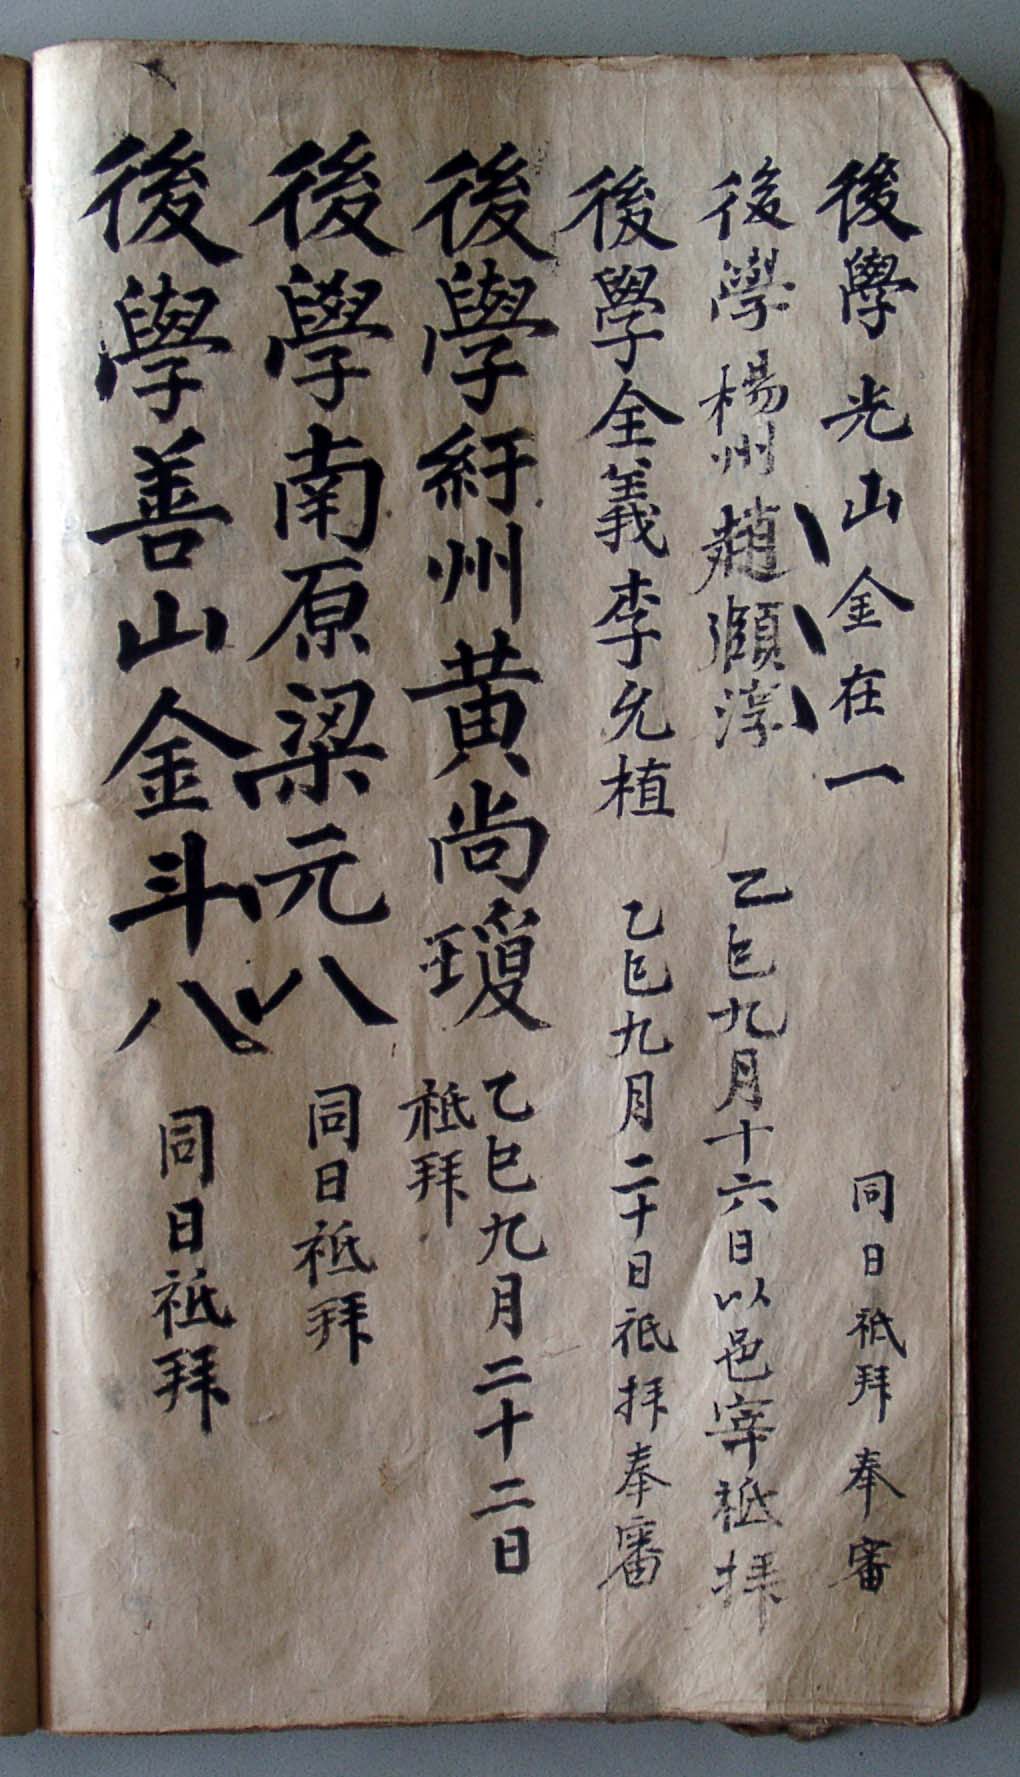 後學光山金在一 同日祗拜奉審
後學楊州趙㒹淳 乙巳九月十六日以邑宰祗拜
後學全義李允植 乙巳九月二十日祗拜奉審
後學紆州黃尚瓊 乙巳九月二十二日
祗拜
後學南原梁元八 同日祗拜
後學善山金斗八 同日祗拜